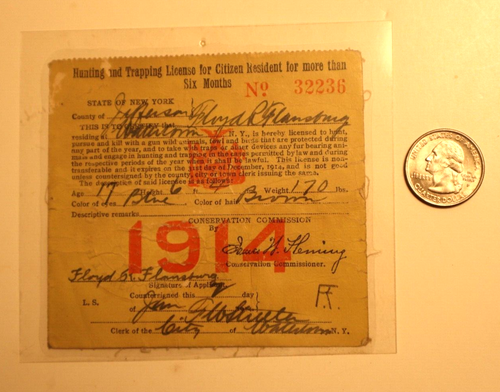 Hunting and Trapping License for Citizen Resident for more than
Six Months No 32236
STATE OF NEW YORK
County of Jefferson Floyd R. Flansburg
THIS IS TO that
residing at Watertown N. Y., is hereby licensed to hunt,
pursue and kill with a gun wild animals, fowl and birds that are protected during
any part of the year, and to take with traps or other devices any fur bearing ani-
mals and engage in hunting and trapping in the manner permitted by law and during
the respective periods of the year when it shall be lawful. This license is non-
transferable and it expires on the last day of December, 1914, and is not good
unless countersigned by the county, city or town clerk issuing the same.
The description of said licensee is as follows:
Age 17 Weight 170 lbs.
Color of eyes Blue Color of hair Brown
Descriptive remarks
CONSERVATION COMMISSION
By
1914
Fleming
Conservation Commissioner.
Floyd R. Flansburg
Signature of Applicant
Countersigned this 2 day
L. S. of Jan
Clerk of the City of Watertown N. Y.
F.F.
LIBERTY